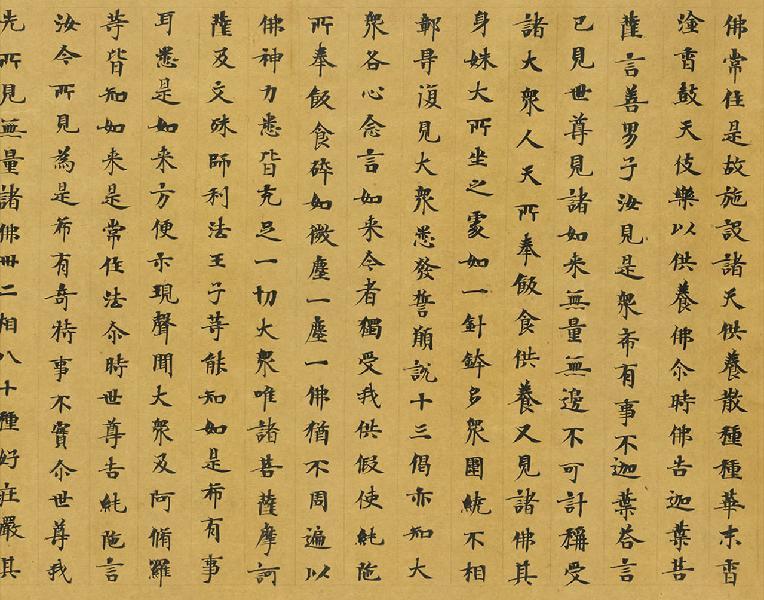 佛常住是故施設諸天供養散種種華末香
塗香鼓天伎樂以供養佛尒時佛告迦葉菩
薩言善男子汝見是眾希有事不迦葉荅言
已見世尊見諸如来無量無邊不可計稱受
諸大眾人天所奉飯食供養又見諸佛其
身姝大所坐之處如一針鋒多眾圍繞不相
鄣导復見大眾悉發誓願說十三偈亦知大
眾各心念言如来今者獨受我供假使純陁
所奉飯食碎如微塵一塵一佛猶不周遍以
佛神力悉皆充足一切大眾唯諸菩薩摩訶
薩及文殊師利法王子等能知如是希有事
耳悉是如来方便示現聲聞大眾及阿脩羅
等皆知如来是常住法尒時世尊告純陁言
汝今所見為是希有奇特事不實尒世尊我
先所見無量諸佛卅二相八十種好莊嚴其